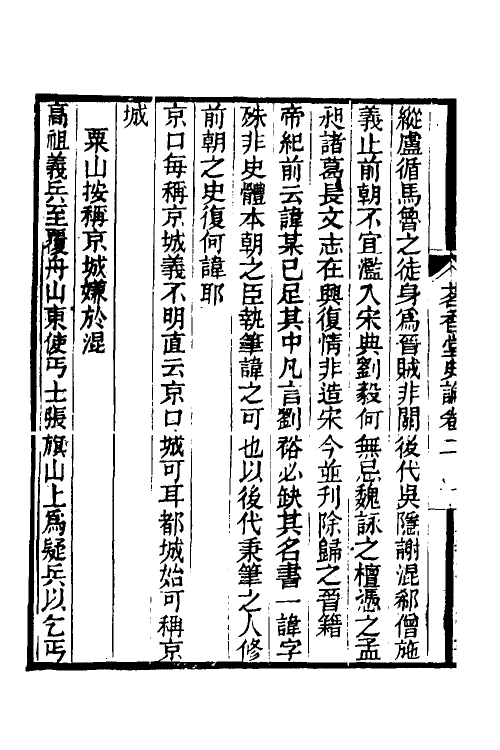 縱盧循馬魯之徒身爲晉賊非關後代吳隱謝混郗僧施
義止前朝不宜濫入宋典劉毅何無忌魏詠之檀憑之孟
昶諸葛長文志在興復情非造宋今並刊除歸之晉籍
帝紀前云諱某已足其中凡言劉裕必缺其名書一諱字
殊非史體本朝之臣執筆諱之可也以後代秉筆之人修
前朝之史復何諱耶
京口每稱京城義不明直云京口城可耳都城始可稱京
城
粟山按稱京城嫌於混
高祖義兵至覆舟山東使丐士張旗山上爲疑兵以乞丐
茗香堂史論卷二